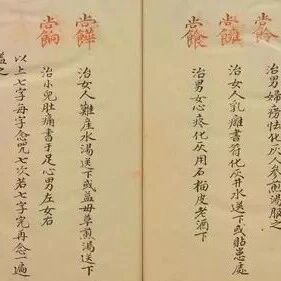 治男婦癆怯化灰人參煎湯服之
治女人乳癰書符化灰井水送下或貼患處
治男女心疼化灰用石榴皮老酒下
治女人難產水湯送下或益母草煎湯送下
治小兒肚痛書于足心男左女右
以上七字每字念咒七次若七字完再念一遍
之